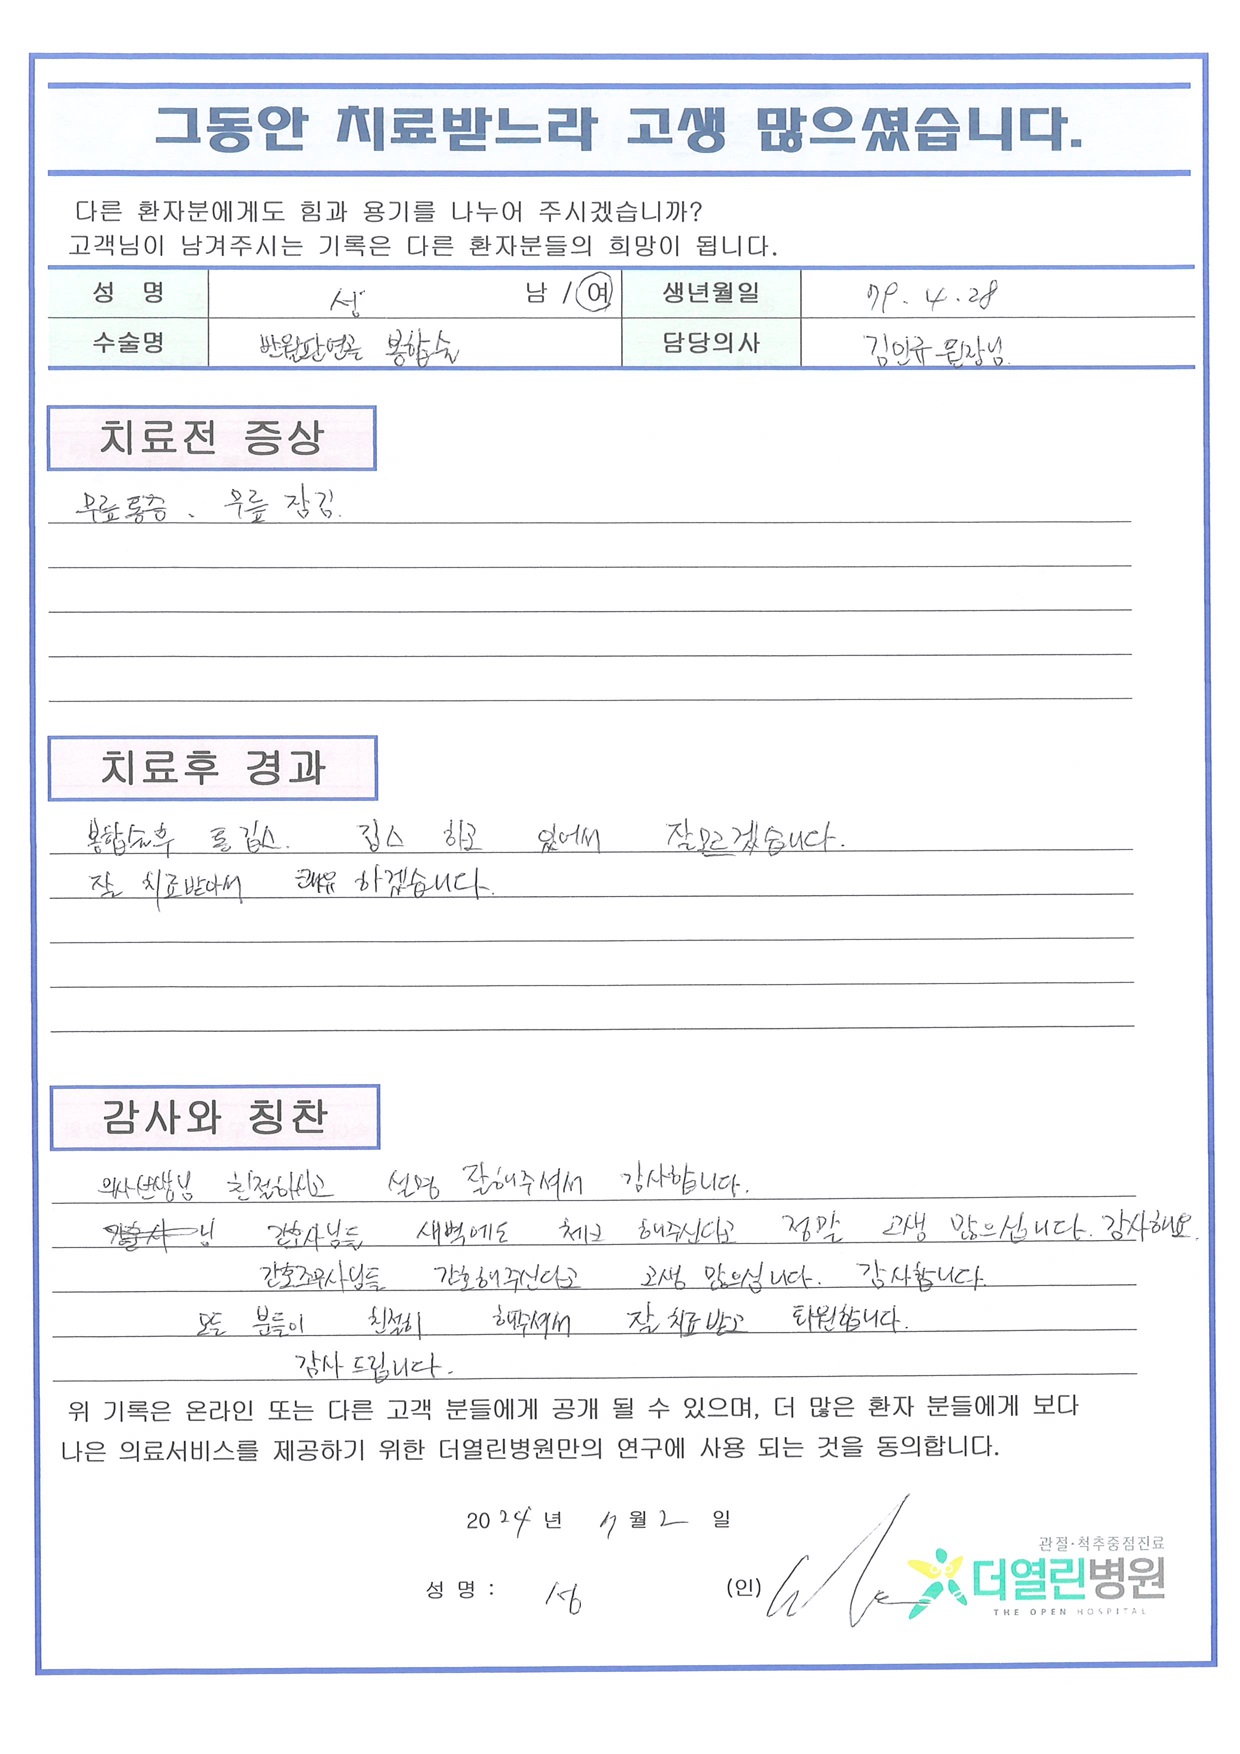 그동안 치료받느라 고생 많으셨습니다.
다른 환자분에게도 힘과 용기를 나누어 주시겠습니까?
고객님이 남겨주시는 기록은 다른 환자분들의 희망이 됩니다.
성 명 성 남 / 여 생년월일 79. 4. 28
수술명 반월판연골 봉합술 담당의사 김인규 원장님.
치료전 증상
무릎통증. 무릎 잠김.
치료후 경과
봉합술후 통깁스. 깁스 하고 있어서 잘모르겠습니다.
잘 치료받아서 쾌유 하겠습니다.
감사와 칭찬
의사선생님 친절하시고 설명 잘해주셔서 감사합니다.
님 간호사님들 새벽에도 체크 해주신다고 정말 고생 많으십니다. 감사해요.
간호조무사님들 간호해주신다고 고생 많으십니다. 감사합니다.
모든 분들이 친절히 해주셔서 잘 치료받고 퇴원합니다.
감사 드립니다.
위 기록은 온라인 또는 다른 고객 분들에게 공개 될 수 있으며, 더 많은 환자 분들에게 보다
나은 의료서비스를 제공하기 위한 더열린병원만의 연구에 사용 되는 것을 동의합니다.
2024 년 7 월 2 일
관절·척추중점진료
성 명 : 성 (인) 더열린병원
THE OPEN HOSPITAL